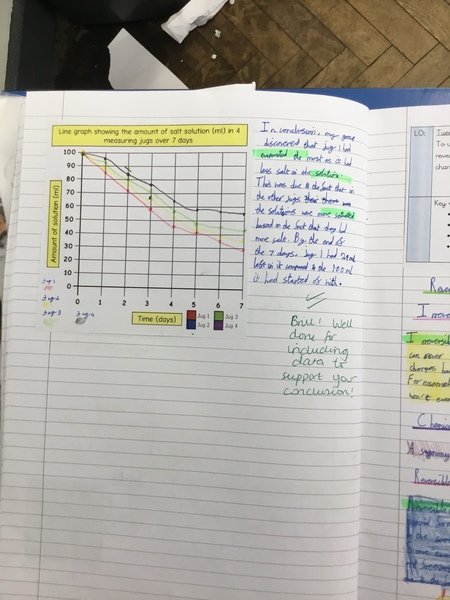 Line graph showing the amount of salt solution (ml) in 4
measuring jugs over 7 days
Amount of solution (ml)
100
90
80
70
60
50
40
30
20
10
0
0 1 2 3 4 5 6 7
Time (days)
Jug 1
Jug 2
Jug 3
Jug 4
Jug-1
Jug-2
Jug-3
Jug-4
In conclusion, my group
discovered that jug 1 had
evaporated the most as it had
less salt in the solution.
This was due to the fact that in
the other jugs there was
the solutions was more
based on the fact that they had
more salt. By the end of
the 7 days, jug 1 had
left in it compared to the 100ml
it had started of with.
Brill! Well
done for
including
data to
support your
conclusion!
LO:
Tues
To
Key
Rever
I rever
I irreversi
can never
changes
For example
won't
Chemic
A
Reversibl
Reversible